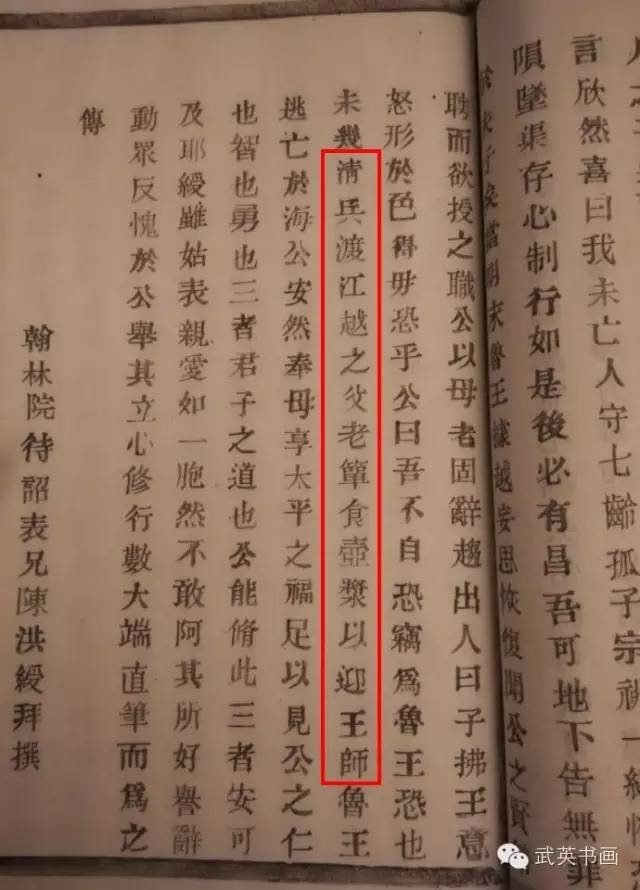 言欣然喜曰我未亡人守七齡孤子宗祧一綫
隕墜渠存心制行如是後必有昌吾可地下告無罪
夫子矣當明末魯王據越妄思恢復聞公之賢
聘而欲授之職公以母老固辭趨出人曰子拂王意
怒形於色得毋恐乎公曰吾不自恐竊爲魯王恐也
未幾清兵渡江越之父老簞食壺漿以迎王師魯王
逃亡於海公安然奉母享太平之福足以見公之仁
也智也勇也三者君子之道也公能脩此三者安可
及耶綬雖姑表親愛如一胞然不敢阿其所好譽辭
動眾反愧於公舉其立心修行數大端直筆而爲之
傳
翰林院待詔表兄陳洪綬拜撰
武英书画